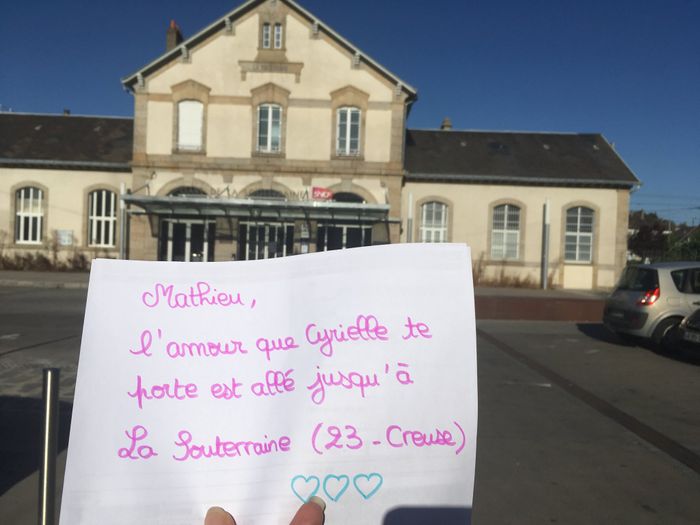 DE LA SOUTERRAINE
SNCF
Mathieu,
l'amour que Cyrielle te
porte est allé jusqu'à
La Souterraine (23-Creuse)